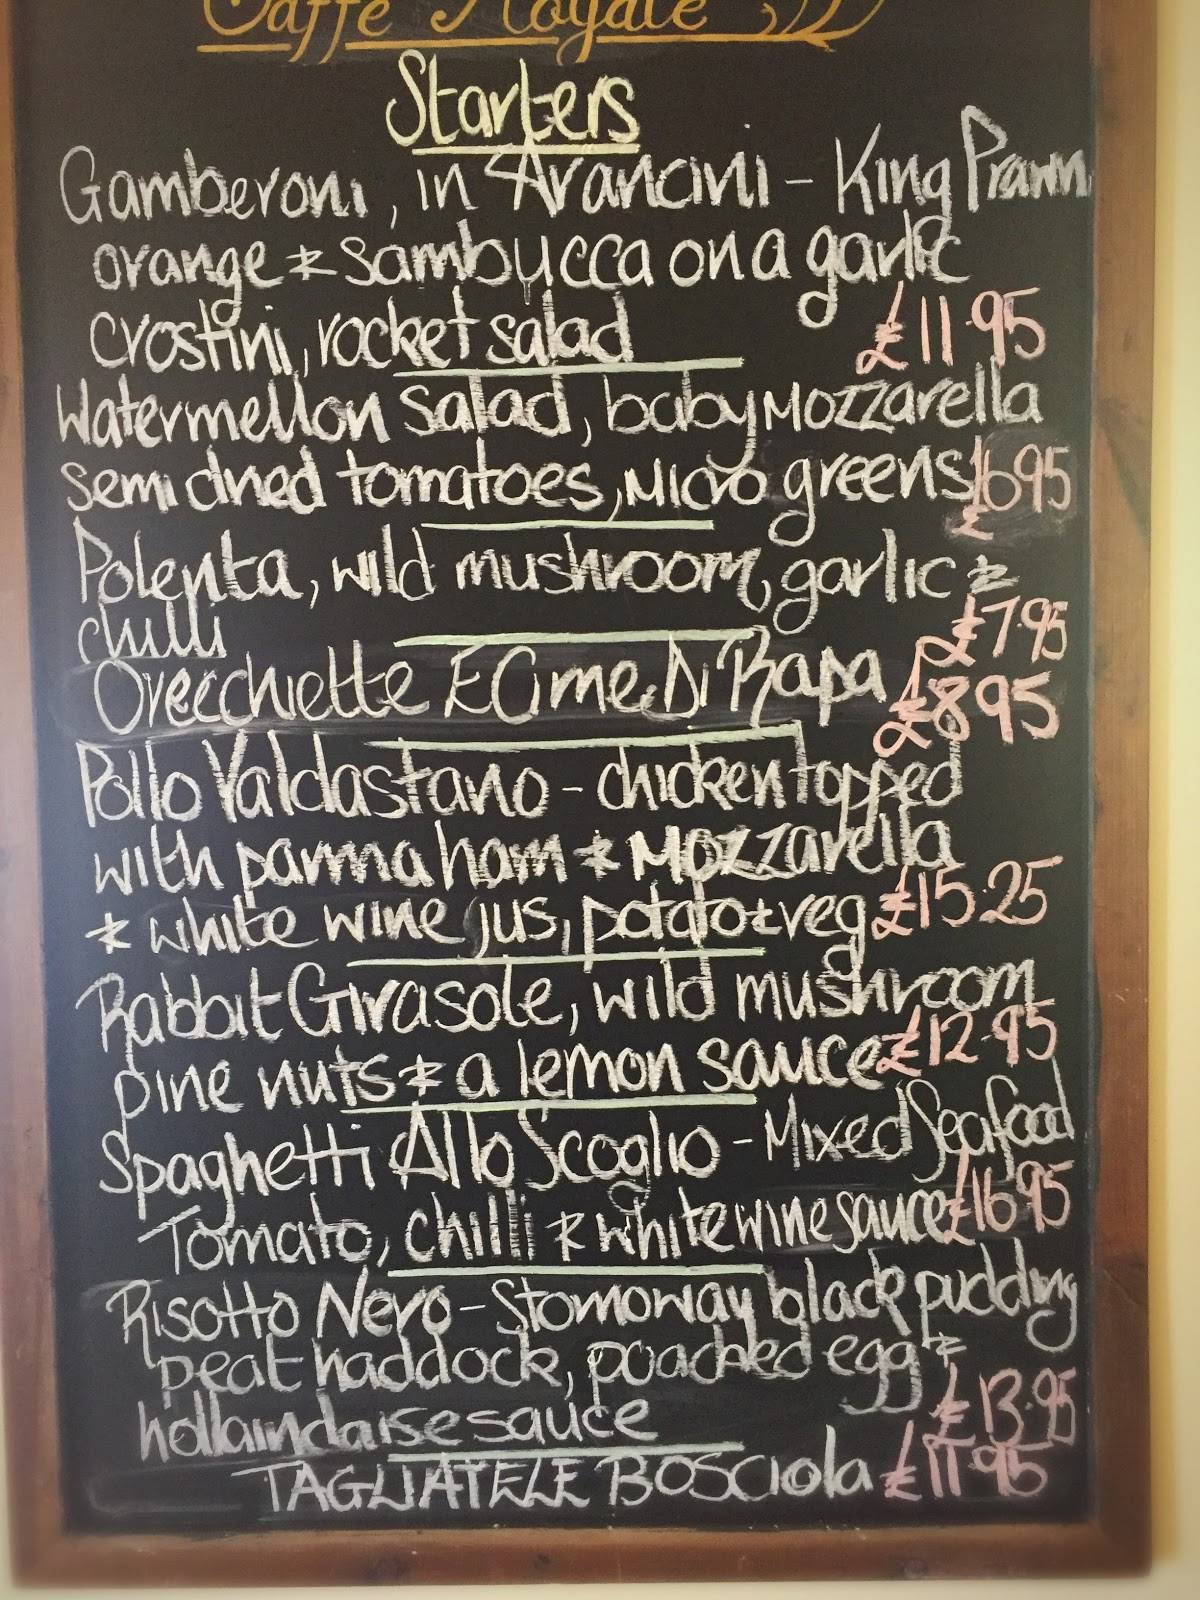 Caffè Royale
Starters
Gamberoni, in Arancini - King Prawn
orange & sambucca on a garlic
crostini, rocket salad £11.95
Watermellon salad, baby Mozzarella
semi dried tomatoes, Micro greens £6.95
Polenta, wild mushroom, garlic &
chilli £7.95
Orecchiette E Cime Di Rapa £8.95
Pollo Valdastano - chicken topped
with parma ham & Mozzarella
& white wine jus, potato & veg £15.25
Rabbit Girasole, wild mushroom
pine nuts & a lemon sauce £12.95
Spaghetti Allo Scoglio - Mixed Seafood
Tomato, chilli & white wine sauce £16.95
Risotto Nero - Stornoway black pudding
peat haddock, poached egg &
hollaindaise sauce £13.95
TAGLIATELE BOSCiola £11.95